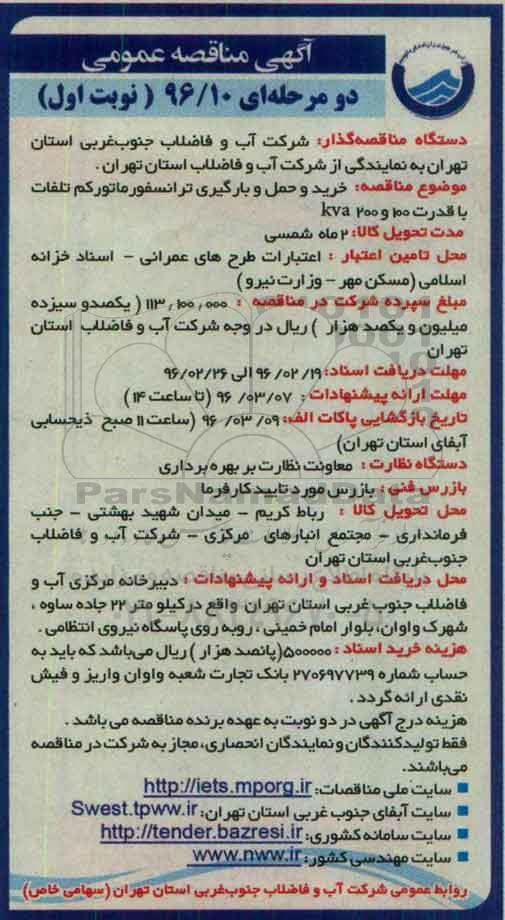 آگهی مناقصه عمومی
دو مرحله‌ای ۹۶/۱۰ ( نوبت اول)
دستگاه مناقصه‌گذار: شرکت آب و فاضلاب جنوب‌غربی استان
تهران به نمایندگی از شرکت آب و فاضلاب استان تهران .
موضوع مناقصه: خرید و حمل و بارگیری ترانسفورماتورکم تلفات
با قدرت ۱۰۰ و ۲۰۰ kva
مدت تحویل کالا: ۲ ماه شمسی
محل تامین اعتبار : اعتبارات طرح های عمرانی - اسناد خزانه
اسلامی (مسکن مهر - وزارت نیرو )
مبلغ سپرده شرکت در مناقصه : ۱۱۳,۱۰۰,۰۰۰ ( یکصدو سیزده
میلیون و یکصد هزار ) ریال در وجه شرکت آب و فاضلاب استان
تهران
مهلت دریافت اسناد: ۹۶/۰۲/۱۹ الی ۹۶/۰۲/۲۶
مهلت ارائه پیشنهادات : ۹۶/۰۳/۰۷ (تا ساعت ۱۴ )
تاریخ بازگشایی پاکات الف: ۹۶/۰۳/۰۹ (ساعت ۱۱ صبح ذیحسابی
آبفای استان تهران)
دستگاه نظارت : معاونت نظارت بر بهره برداری
بازرس فنی : بازرس مورد تایید کارفرما
محل تحویل کالا : رباط کریم - میدان شهید بهشتی - جنب
فرمانداری - مجتمع انبارهای مرکزی - شرکت آب و فاضلاب
جنوب‌غربی استان تهران
محل دریافت اسناد و ارائه پیشنهادات : دبیرخانه مرکزی آب و
فاضلاب جنوب غربی استان تهران واقع درکیلو متر ۲۲ جاده ساوه ،
شهرک واوان، بلوار امام خمینی ، روبه روی پاسگاه نیروی انتظامی .
هزینه خرید اسناد : ۵۰۰۰۰۰(پانصد هزار ) ریال می‌باشد که باید به
حساب شماره ۲۷۰۶۹۷۷۳۹ بانک تجارت شعبه واوان واریز و فیش
نقدی ارائه گردد .
هزینه درج آگهی در دو نوبت به عهده برنده مناقصه می باشد .
فقط تولیدکنندگان و نمایندگان انحصاری، مجاز به شرکت در مناقصه
می‌باشند.
سایت ملی مناقصات: http://iets.mporg.ir
سایت آبفای جنوب غربی استان تهران: Swest.tpww.ir
سایت سامانه کشوری: http://tender.bazresi.ir
سایت مهندسی کشور: www.nww.ir
روابط عمومی شرکت آب و فاضلاب جنوب‌غربی استان تهران (سهامی خاص)
ParsNamadData